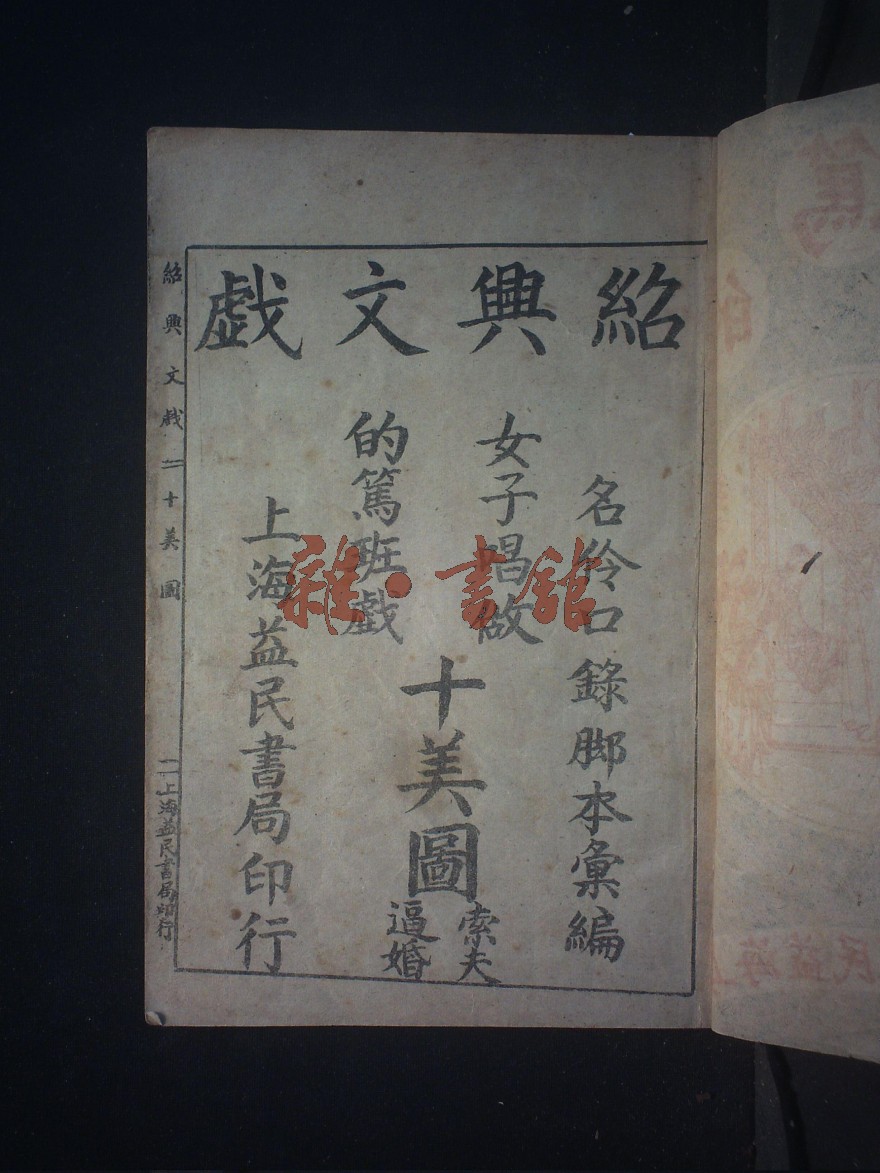 紹興文戲
名伶口錄脚本彙編
女子唱做
的篤班戲
十美圖
索夫
逼婚
上海益民書局印行
紹興文戲 十美圖
一 上海益民書局印行
雜·書舘
篤